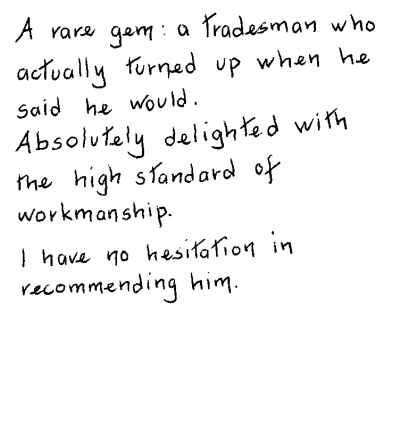 A rare gem: a Tradesman who
actually turned up when he
said he would.
Absolutely delighted with
the high standard of
workmanship.
I have no hesitation in
recommending him.